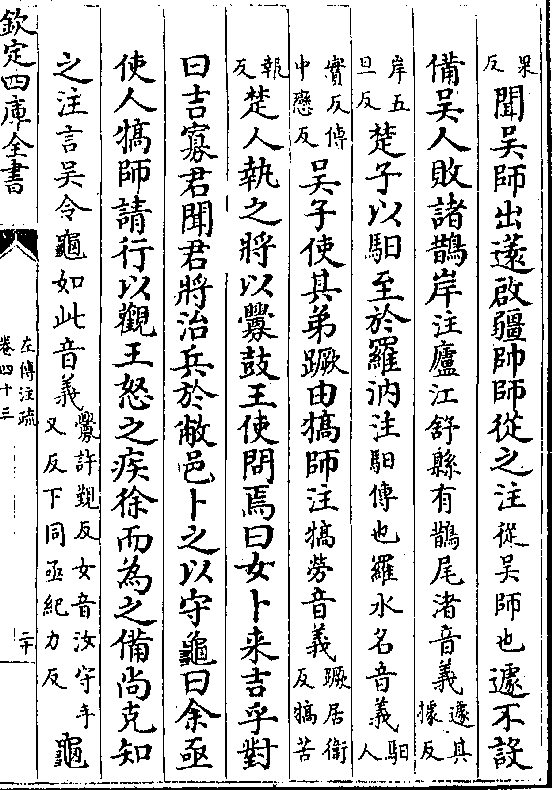 果反聞吳師出薳啟疆帥師從之注從吳師也遽不設
備吳人敗諸鵲岸注廬江舒縣有鵲尾渚音義遽其據反
岸五旦反楚子以馹至於羅汭注馹傳也羅水名音義馹人
實反傳中戀反吳子使其弟蹶由犒師注犒勞音義蹶居衛反犒苦
報反楚人執之將以釁鼓王使問焉曰女卜来吉乎對
曰吉寡君聞君將治兵於敝邑卜之以守龜曰余亟
使人犒師請行以觀王怒之疾徐而為之備尚克知
之注言吳令龜如此音義釁許覲反女音汝守手又反下同亟紀力反龜
欽定四庫全書
左傳注疏
卷四十三
二十